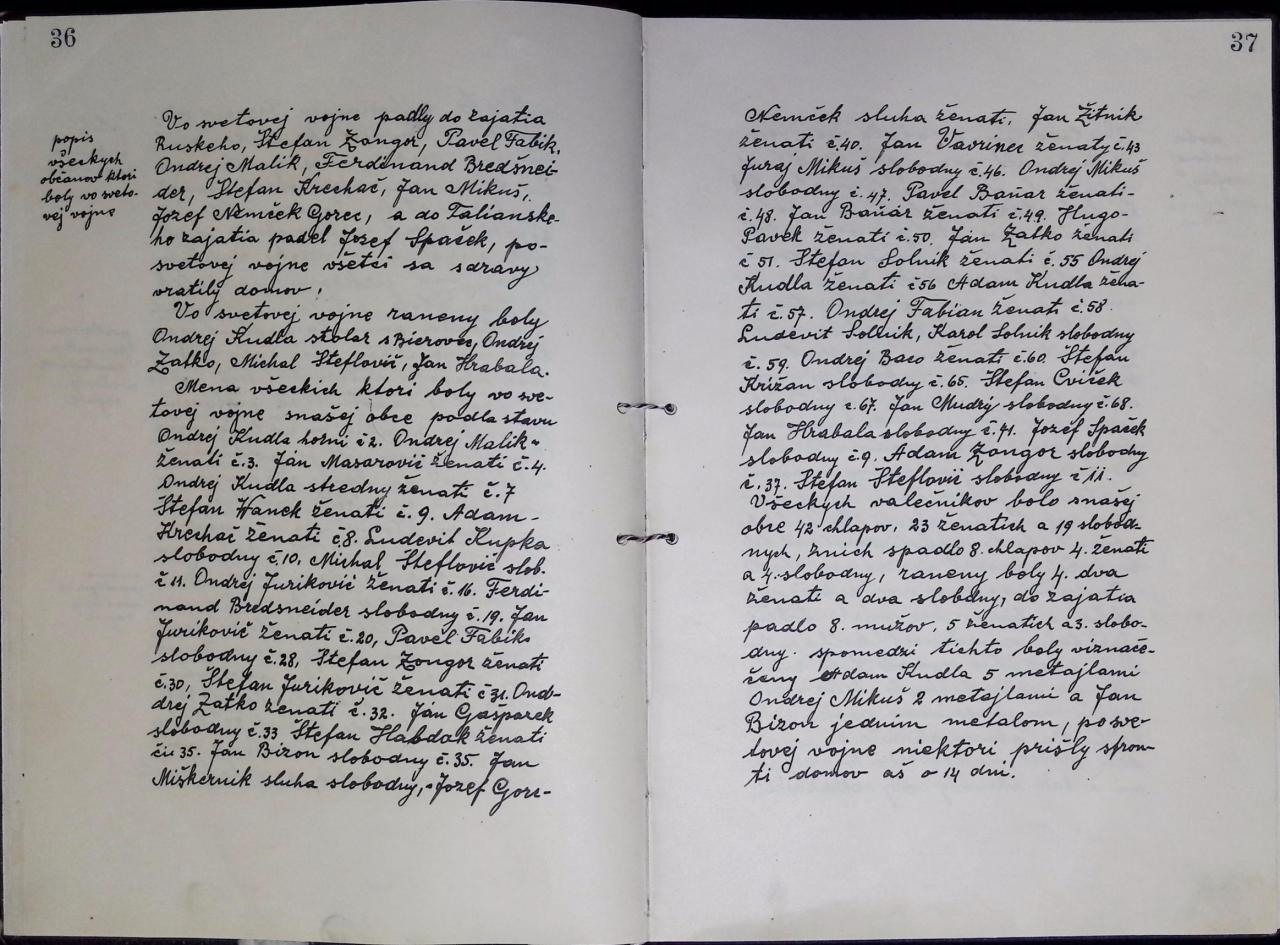 36
popis
všeckych
občanov ktori
boly vo sveto-
vej vojne
Vo svetovej vojne padly do zajatia
Ruskeho, Štefan Zongor, Pavel Fabik,
Ondrej Malik, Ferdinand Bredšnei-
der, Štefan Krechač, Jan Mikuš,
Jozef Němček Gorec, a do Talianske-
ho zajatia padel Jozef Spaček, po-
svetovej vojne všetci sa sdravy
vratily domov.
Vo svetovej vojne raneny boly
Ondrej Kudla stolar s Bierovec, Ondrej
Zatko, Michal Šteflovič, Jan Hrabala.
Mena všeckich ktori boly vo sve-
tovej vojne snašej obce podla stavu
Ondrej Kudla horni č 2. Ondrej Malik-
ženati č.3. Jan Masarovič ženati č.4.
Ondrej Kudla stredny ženati č.7
Štefan Wanek ženati č.9. Adam-
Krechač ženati č8. Ludevit Kupka
slobodny č.10, Michal Šteflovič slob.
č 11. Ondrej Jurikovič ženati č.16. Ferdi-
nand Bredsneider slobodny č.19. Jan
Jurikovič ženati č.20, Pavel Fabik
slobodny č.28, Štefan Zongor ženati
č.30, Štefan Jurikovič ženati č 31. Ond-
drej Zatko ženati č.32. Jan Gašparek
slobodny č.33 Štefan Habdak ženati
čis 35. Jan Bizon slobodny č.35. Jan
Miškernik sluha slobodny, Jozef Gore-
37
Nemček sluha ženati. Jan Žitnik
ženati č.40. Jan Vavriner ženaty č.43
Juraj Mikuš slobodny č.46. Ondrej Mikuš
slobodny č.47. Pavel Baňar ženati-
č.48. Jan Baňar ženati č.49. Hugo-
Pavek ženati č.50. Jan Zatko ženati
č 51. Štefan Solnik ženati č.55 Ondrej
Kudla ženati č56 Adam Kudla žena-
ti č.57. Ondrej Fabian ženati č.58.
Ludevit Solnik, Karol Solnik slobodny
č.59. Ondrej Baco ženati č.60. Štefan
Križan slobodny č.65. Štefan Cviček
slobodny č.67. Jan Mudrý slobodny č.68.
Jan Hrabala slobodny č.41. Jozef Spaček
slobodny č.9. Adam Zongor slobodny
č.37. Štefan Šteflovič slobodny č 11.
Všeckych valečnikov bolo snašej
obce 42 chlapov, 23 ženatich a 19 slobod-
nych, znich spadlo 8. chlapov 4. ženati
a 4. slobodny, raneny boly 4. dva
ženati a dva slobdny, do zajatia
padlo 8. mužov, 5 ženatich a 3. slobo-
dny. spomedzi tichto boly viznače-
čeny Adam Kudla 5 metajlami
Ondrej Mikuš 2 metajlami a Jan
Bizon jednim metalom, po sve-
tovej vojne niektori prišly sfron-
ti domov aš o 14 dni.